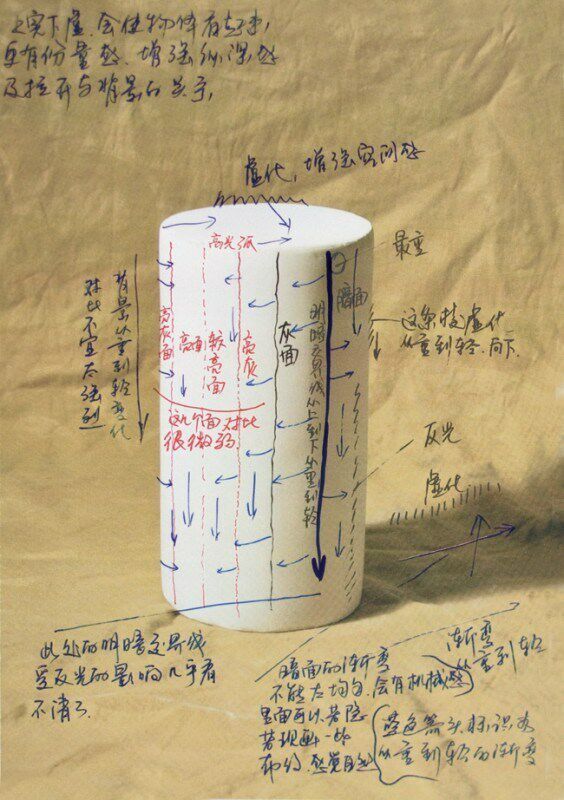 上实下虚.会使物体有起来,
更有份量感.增强纵深感
及拉开与背景的关系,
虚化,增强空间感
高光弧
最重
背景从重到轻变化
对比不宜太强烈
高灰面
高面
较高面
高灰
灰面
明暗交界线从上到下从重到轻
暗面
这条线虚化
从重到轻.向下.
这几个面对比
很微弱.
反光
虚化.
此处的明暗交界线
受反光的影响几乎看
不清了.
渐变
从重到轻
暗面的渐变
不能太均匀.会有机械感
里面可以若隐
若现画一些
蓝色箭头标识为
从重到轻的渐变